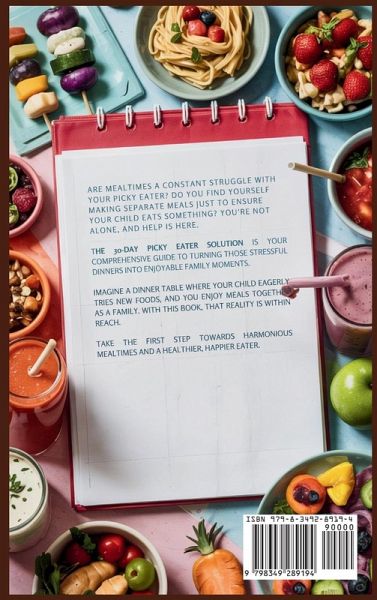 ARE MEALTIMES A CONSTANT STRUGGLE WITH
YOUR PICKY EATER? DO YOU FIND YOURSELF
MAKING SEPARATE MEALS JUST TO ENSURE
YOUR CHILD EATS SOMETHING? YOU'RE NOT
ALONE, AND HELP IS HERE.
THE 30-DAY PICKY EATER SOLUTION IS YOUR
COMPREHENSIVE GUIDE TO TURNING THOSE STRESSFUL
DINNERS INTO ENJOYABLE FAMILY MOMENTS.
IMAGINE A DINNER TABLE WHERE YOUR CHILD EAGERLY
TRIES NEW FOODS, AND YOU ENJOY MEALS TOGETHER
AS A FAMILY. WITH THIS BOOK, THAT REALITY IS WITHIN
REACH.
TAKE THE FIRST STEP TOWARDS HARMONIOUS
MEALTIMES AND A HEALTHIER, HAPPIER EATER.
ISBN 979-8-3492-8919-4
90000
9 798349 289194